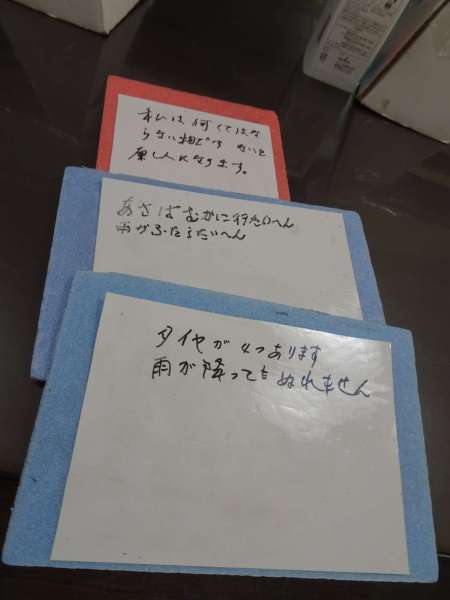 私は何くてはな
らない物です ないと
原し人になります。
あさばむかに行たいへん
雨がふたらたいへん
タイヤが4つあります
雨が降ってもぬれません